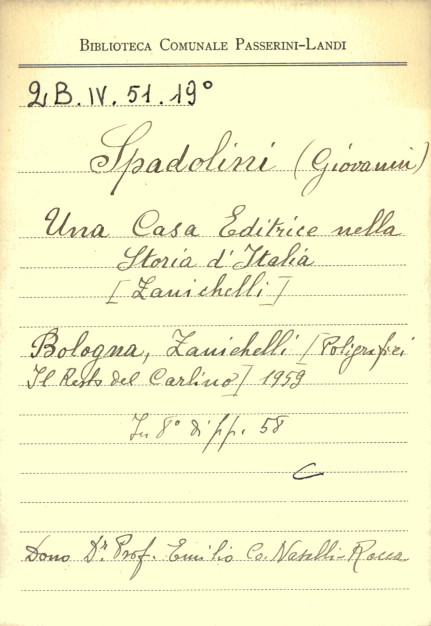 BIBLIOTECA COMUNALE PASSERINI-LANDI
2B.IV.51.19°
Spadolini (Giovanni)
Una Casa Editrice nella
Storia d'Italia
[Zanichelli]
Bologna, Zanichelli [Poligrafici
Il Resto del Carlino] 1959
In 8° di pp. 58
Dono Dr. Prof. Emilio Co. Nasalli-Rocca